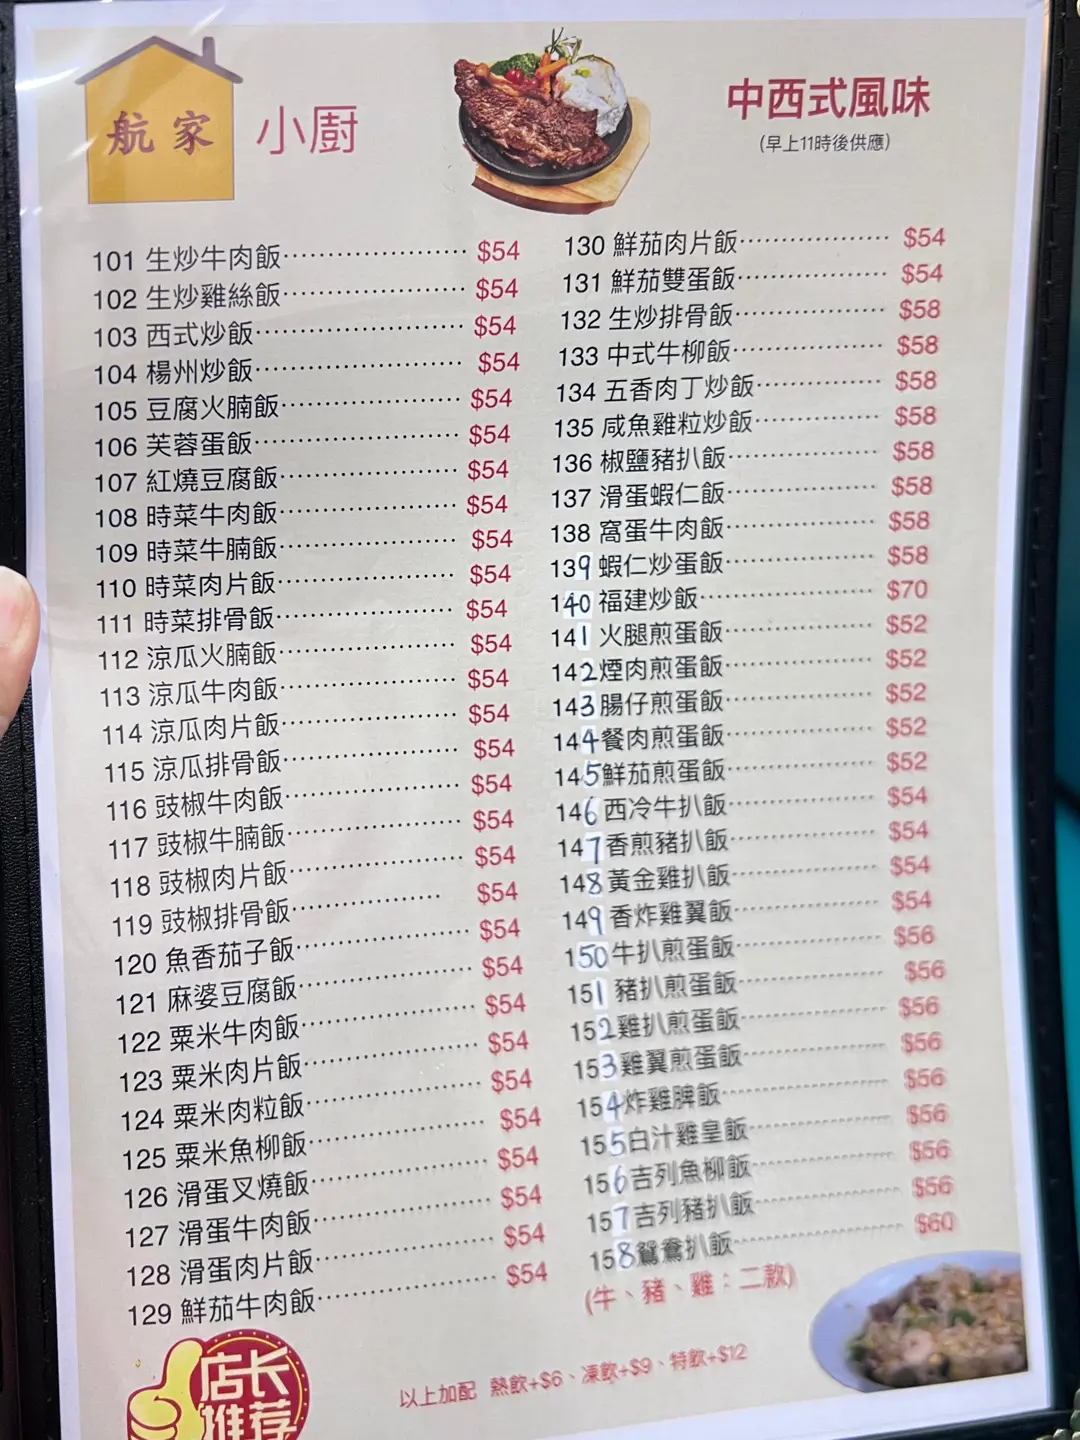 航家 小厨
中西式風味
(早上11時後供應)
101 生炒牛肉飯 $54
102 生炒雞絲飯 $54
103 西式炒飯 $54
104 楊州炒飯 $54
105 豆腐火腩飯 $54
106 芙蓉蛋飯 $54
107 紅燒豆腐飯 $54
108 時菜牛肉飯 $54
109 時菜牛腩飯 $54
110 時菜肉片飯 $54
111 時菜排骨飯 $54
112 涼瓜火腩飯 $54
113 涼瓜牛肉飯 $54
114 涼瓜肉片飯 $54
115 涼瓜排骨飯 $54
116 豉椒牛肉飯 $54
117 豉椒牛腩飯 $54
118 豉椒肉片飯 $54
119 豉椒排骨飯 $54
120 魚香茄子飯 $54
121 麻婆豆腐飯 $54
122 粟米牛肉飯 $54
123 粟米肉片飯 $54
124 粟米肉粒飯 $54
125 粟米魚柳飯 $54
126 滑蛋叉燒飯 $54
127 滑蛋牛肉飯 $54
128 滑蛋肉片飯 $54
129 鮮茄牛肉飯 $54
130 鮮茄肉片飯 $54
131 鮮茄雙蛋飯 $54
132 生炒排骨飯 $58
133 中式牛柳飯 $58
134 五香肉丁炒飯 $58
135 咸魚雞粒炒飯 $58
136 椒鹽豬扒飯 $58
137 滑蛋蝦仁飯 $58
138 窩蛋牛肉飯 $58
139 蝦仁炒蛋飯 $58
140 福建炒飯 $70
141 火腿煎蛋飯 $52
142 煙肉煎蛋飯 $52
143 腸仔煎蛋飯 $52
144 餐肉煎蛋飯 $52
145 鮮茄煎蛋飯 $52
146 西冷牛扒飯 $54
147 香煎豬扒飯 $54
148 黃金雞扒飯 $54
149 香炸雞翼飯 $54
150 牛扒煎蛋飯 $56
151 豬扒煎蛋飯 $56
152 雞扒煎蛋飯 $56
153 雞翼煎蛋飯 $56
154 炸雞脾飯 $56
155 白汁雞皇飯 $56
156 吉列魚柳飯 $56
157 吉列豬扒飯 $56
158 鴛鴦扒飯 $60
(牛、豬、雞：二款)
以上加配 熱飲+$6、凍飲+$9、特飲+$12
店长
推荐